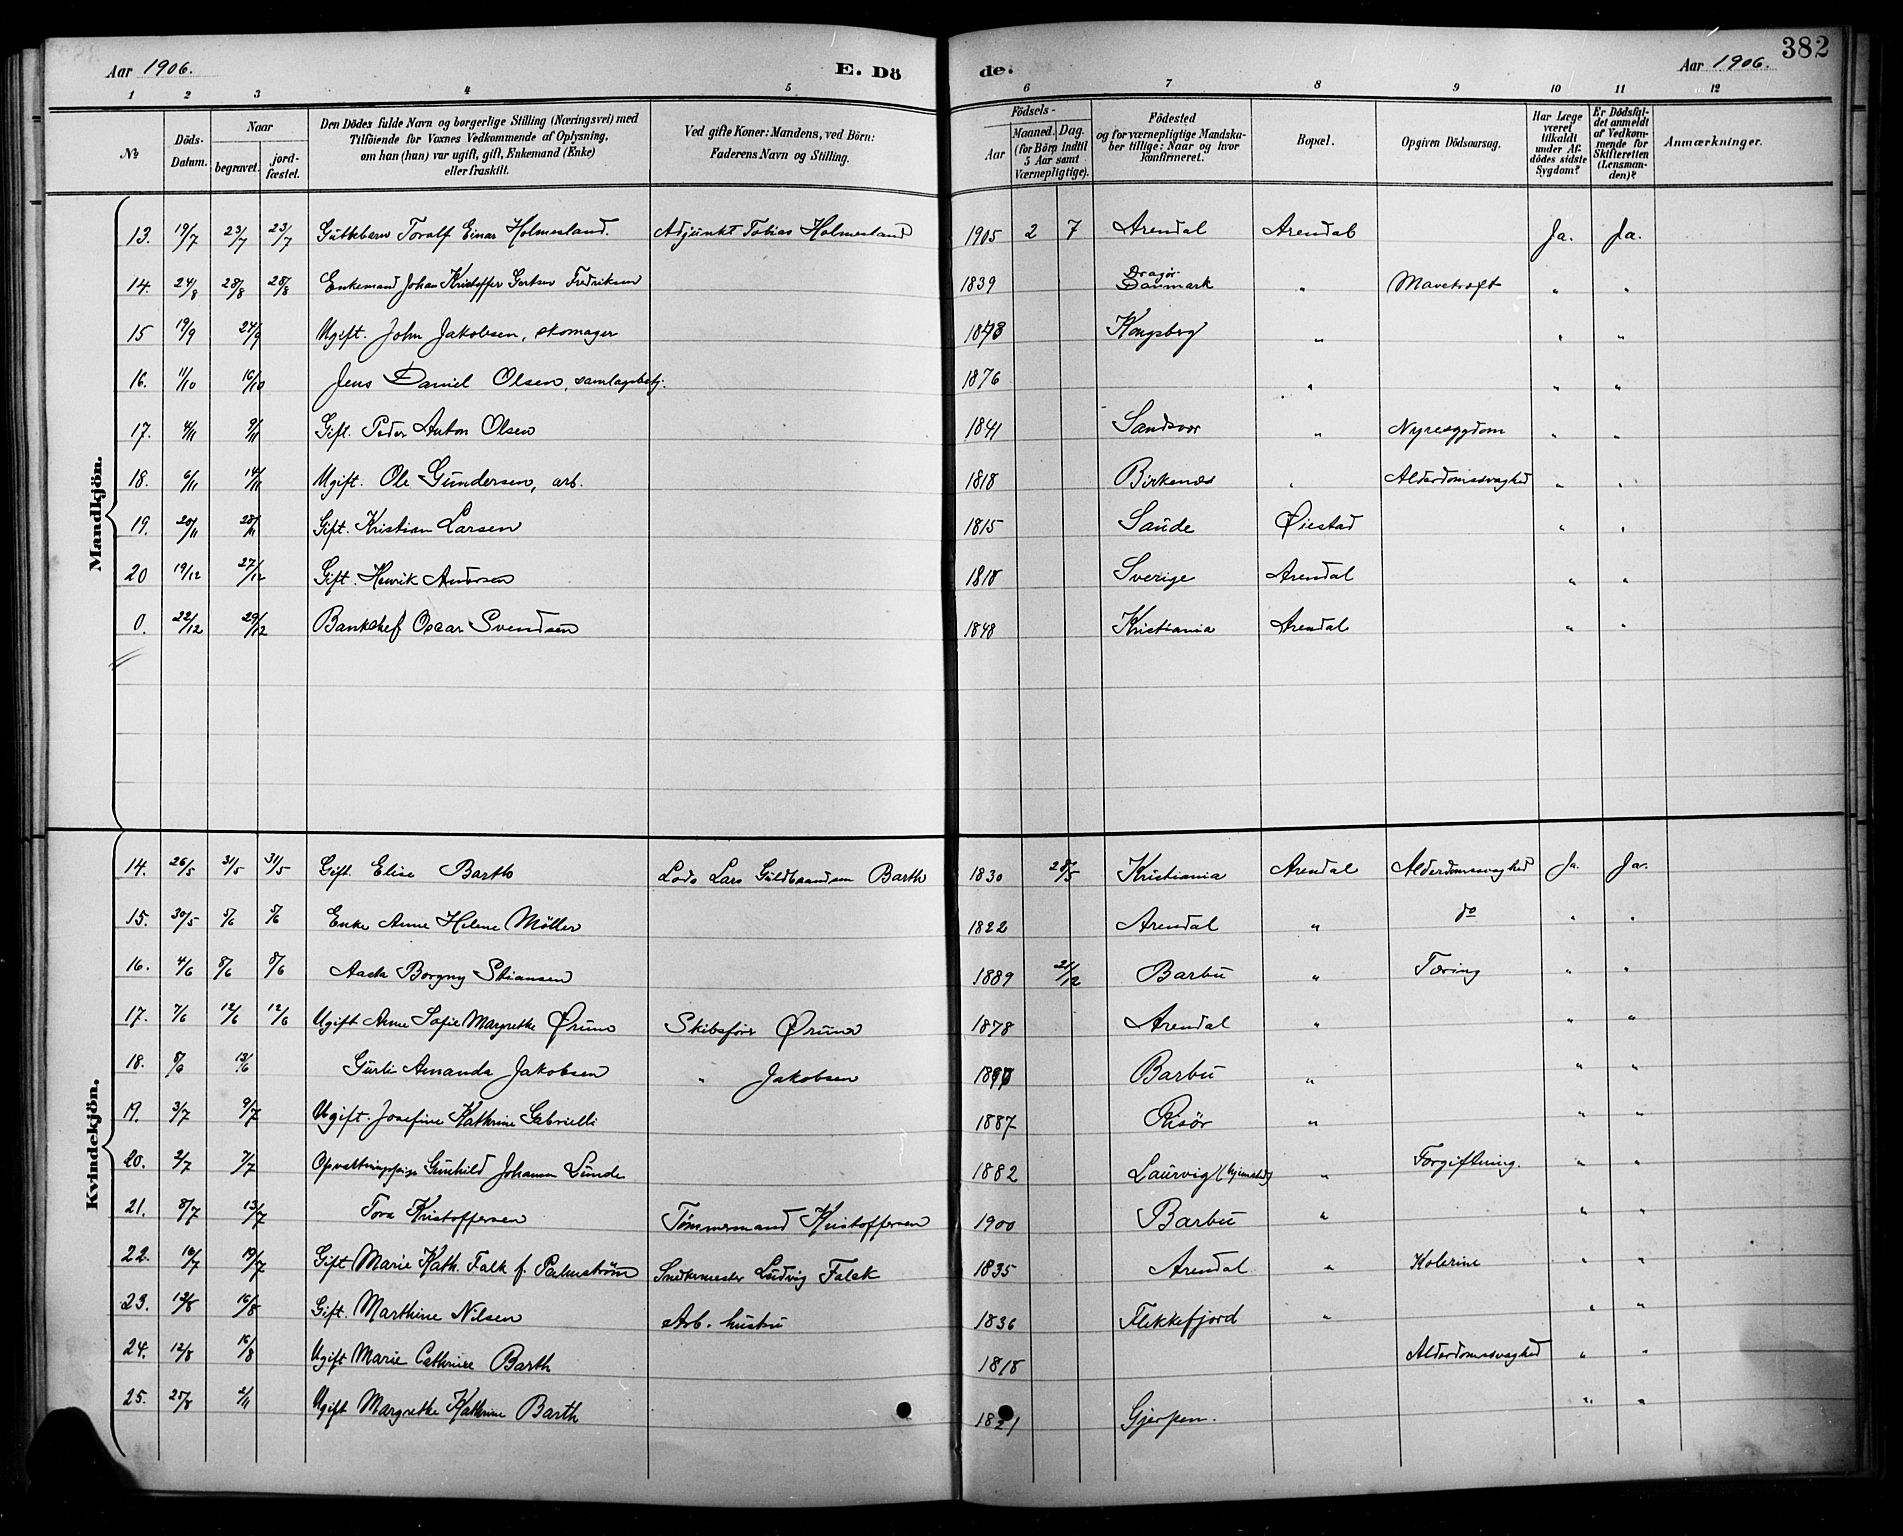 382
Aar 1906. E. Dö de. Aar 1906.
1 2 3 4 5 6 7 8 9 10 11 12
No Döds-Datum. Naar begravet. jord-fæstet. Den Dödes fulde Navn og borgerlige Stilling (Næringsvei) med Tilföiende for Voxnes Vedkommende af Oplysning, om han (hun) var ugift, gift, Enkemand (Enke) eller fraskilt. Ved gifte Koner: Mandens, ved Börn: Faderens Navn og Stilling. Födsels- Aar Maaned. Dag. (for Börn indtil 5 Aar samt Værnepligtige). Födested og for værnepligtige Mandska-ber tillige: Naar og hvor konfirmeret. Bopæl. Opgiven Dödsaarsag. Har Læge været tilkaldt under Af-dödes sidste Sygdom? Er Dödsfal-det anmeldt af Vedkom-mende for Skifteretten (Lensman-den)? Anmærkninger.
Mandkjön.
13. 19/7 23/7 23/7 Guttebarn Toralf Einar Holmesland. Adjunkt Tobias Holmesland 1905 2 7 Arendal Arendal Ja. Ja.
14. 24/8 28/8 28/8 Enkemand Johan Kristoffer Gertsen Fredriksen 1839 Dragör Danmark " Mavekræft " "
15 19/9 24/9 Ugift. John Jakobsen, skomager Kongsberg " " "
16. 11/10 16/10 Jens Daniel Olsen, samlagsbetj. 1876 " " "
17. 4/11 9/11 Gift. Peder Anton Olsen 1841 Sandsvær " Nyresygdom " "
18. 6/11 14/11 Ugift. Ole Gundersen, arb. 1818 Birkenes " Alderdomssvaghed " "
19. 20/11 28/11 Gift. Kristian Larsen 1815 Saude Øiestad " "
20 19/12 27/12 Gift. Henrik Andersen 1818 Sverige Arendal " "
0. 22/12 29/12 Bankchef Oscar Svendsen 1848 Kristiania Arendal " "
Kvindekjön.
14. 26/5 31/5 31/5 Gift. Elise Barth Lods Lars Guldbrandsen Barth 1830 28/5 Kristiania Arendal Alderdomssvaghed Ja. Ja.
15. 30/5 5/6 5/6 Enke Anne Helene Møller 1822 Arendal " do " "
16. 4/6 8/6 8/6 Aasta Borgny Stiansen 1889 21/12 Barbu " Tæring " "
17. 7/6 12/6 12/6 Ugift Anne Sofie Margrethe Ørum Skibsfører Ørum 1878 Arendal " " "
18. 8/6 13/6 Gurli Amanda Jakobsen " Jakobsen Barbu " " "
19. 3/7 9/7 Ugift. Josefine Kathrine Gabrielli 1887 Risör " " "
20. 2/7 7/7 Opvartningspige Gunhild Johanna Lunde 1882 Laurvig (hjemsted) " Forgiftning. " "
21. 8/7 13/7 Tora Kristoffersen Tömmermand Kristoffersen 1900 Barbu " " "
22. 16/7 19/7 Gift Marie Kath. Falk f. Palmström Snekermester Ludvig Falck 1835 Arendal " Kolerine " "
23. 12/8 16/8 Gift. Marthine Nilsen Arb. hustru 1836 Flekkefjord " " "
24. 12/8 16/8 Ugift Marie Cathrine Barth 1818 Alderdomssvaghed " "
25. 25/8 2/11 Ugift Margrethe Kathrine Barth 1821 Gjerpen. " "